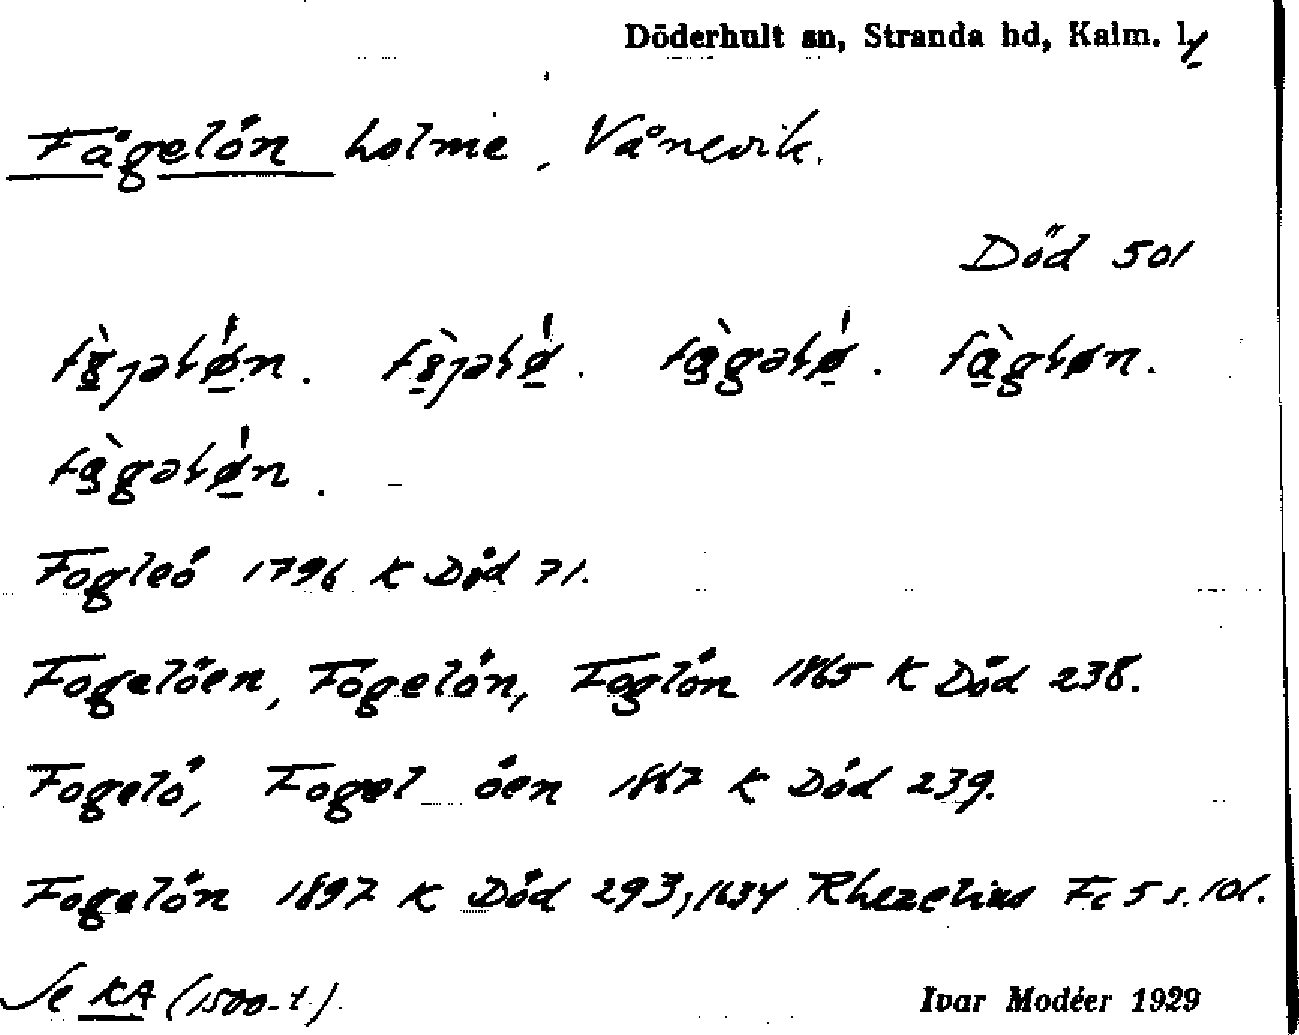 Döderhult sn, Stranda hd, Kalm. l.
Fågelön holme, Vånevik.
Död 501
fàgəłǿn.
Fogleö 1796 K Död 71.
Fogelöen, Fogelön, Foglön 1865 K Död 238.
Fogelö, Fogel öen 1867 K Död 239.
Fogelön 1897 K Död 293, 1634 Rhezelius Fc 5 s. 101.
Se KA (1500-t.)
Ivar Modéer 1929